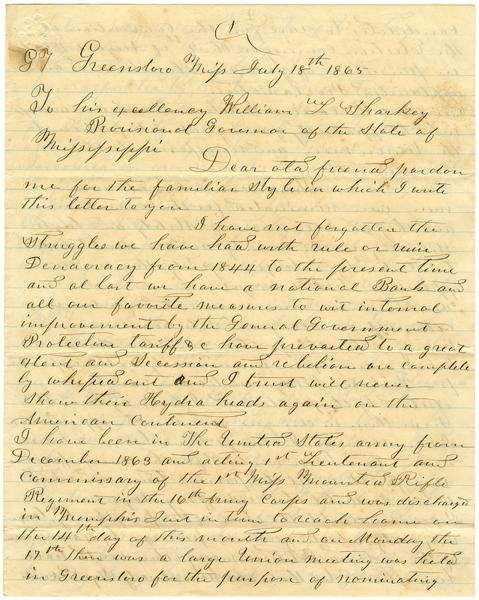 1
Greensboro Miss July 18th 1865
To his excellency William L Sharkey
Provisional Govenor of the State of
Mississippi
Dear old friend pardon
me for the familiar style in which I write
this letter to you
I have not forgotten the
Struggles we have had with rule or ruin
Democracy from 1844 to the present time
and at last we have a national Bank and
all our favorite measures to wit internal
improvement by the General Government
Protective tariff &c have prevailed to a great
extent and Secession and rebelion are complete
ly whiped out and I trust will never
show their Hydra heads again on the
American Continend
I have been in The United States army from
December 1863 and acting 1st Lieutenant and
Commissary of the 1st Miss Mounted Rifle
Regiment in the 16th Army Corps and was discharged
in Memphis Just in time to reach home on
the 14th day of this month and on Monday the
17th there was a large Union meeting was held
in Greensboro for the purpose of nominating